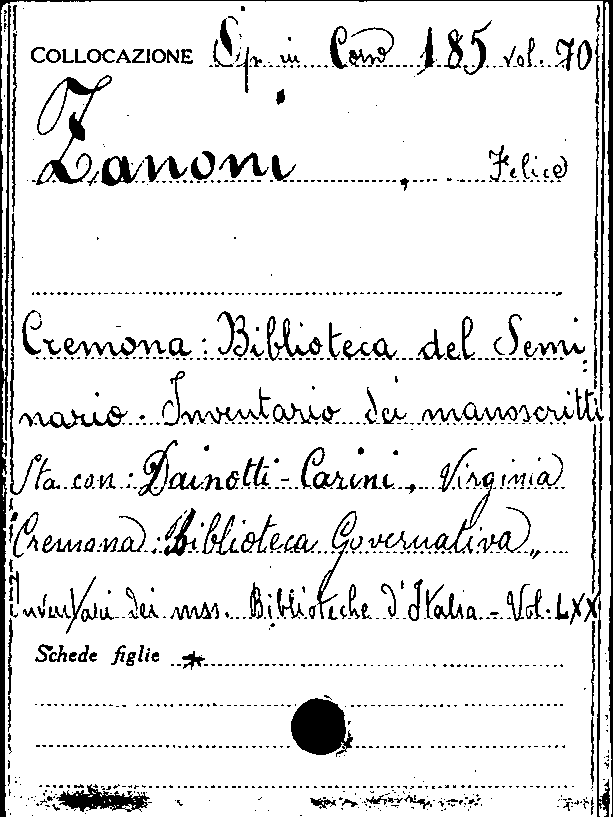 COLLOCAZIONE Op. in Corso 185 vol. 70
Zanoni, Felice
Cremona: Biblioteca del Semi-
nario. Inventario dei manoscritti
Sta con: Dainotti-Carini, Virginia
Cremona: Biblioteca Governativa„
Inventari dei mss. Biblioteche d'Italia - Vol. LXX
Schede figlie *